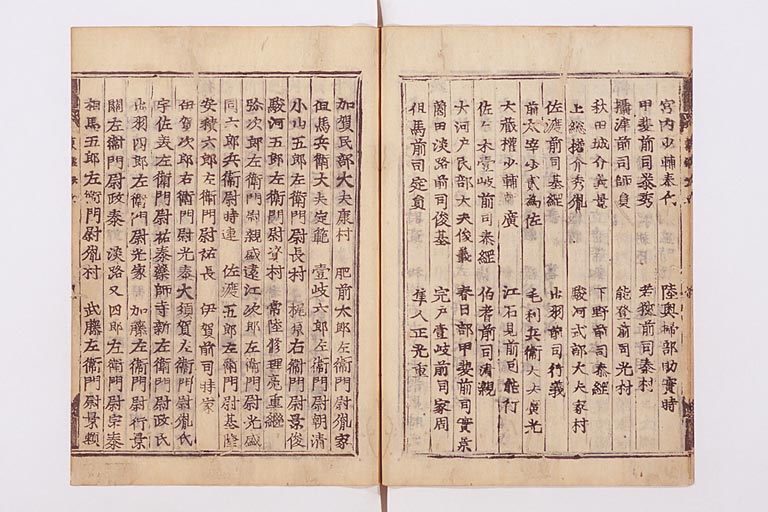 宮内少輔泰氏 陸奥掃部助實時
甲斐前司泰秀 若狹前司泰村
攝津前司師員 能登前司光村
秋田城介義景 下野前司泰綱
上總權介秀胤 駿河式部大夫家村
佐渡前司基綱 出羽前司行義
前太宰少貳為佐 毛利兵衛大夫廣光
大藏權少輔 廣 江石見前司能行
佐々木壹岐前司泰綱 伯耆前司清親
大河戸民部大夫俊義 春日部甲斐前司實景
薗田淡路前司俊基 宍戸壹岐前司家周
但馬前司定員 隼人正光重
加賀民部大夫康村 肥前太郎左衛門尉胤家
但馬兵衛大夫定範 壹岐六郎左衛門尉朝清
小山五郎左衛門尉長村 梶原右衛門尉景俊
駿河五郎左衛門尉資村 常陸修理亮重繼
弥次郎左衛門尉親盛 遠江次郎左衛門尉光盛
同六郎兵衛尉時連 佐渡五郎左衛門尉基隆
安積六郎左衛門尉祐長 伊賀前司時家
伊賀次郎右衛門尉光泰 大須賀左衛門尉胤氏
宇佐美左衛門尉祐泰 藥師寺新左衛門尉政氏
出羽四郎左衛門尉光家 加藤左衛門尉行景
關左衛門尉政泰 淡路又四郎左衛門尉宗泰
相馬五郎左衛門尉胤村 武藤左衛門尉景頼